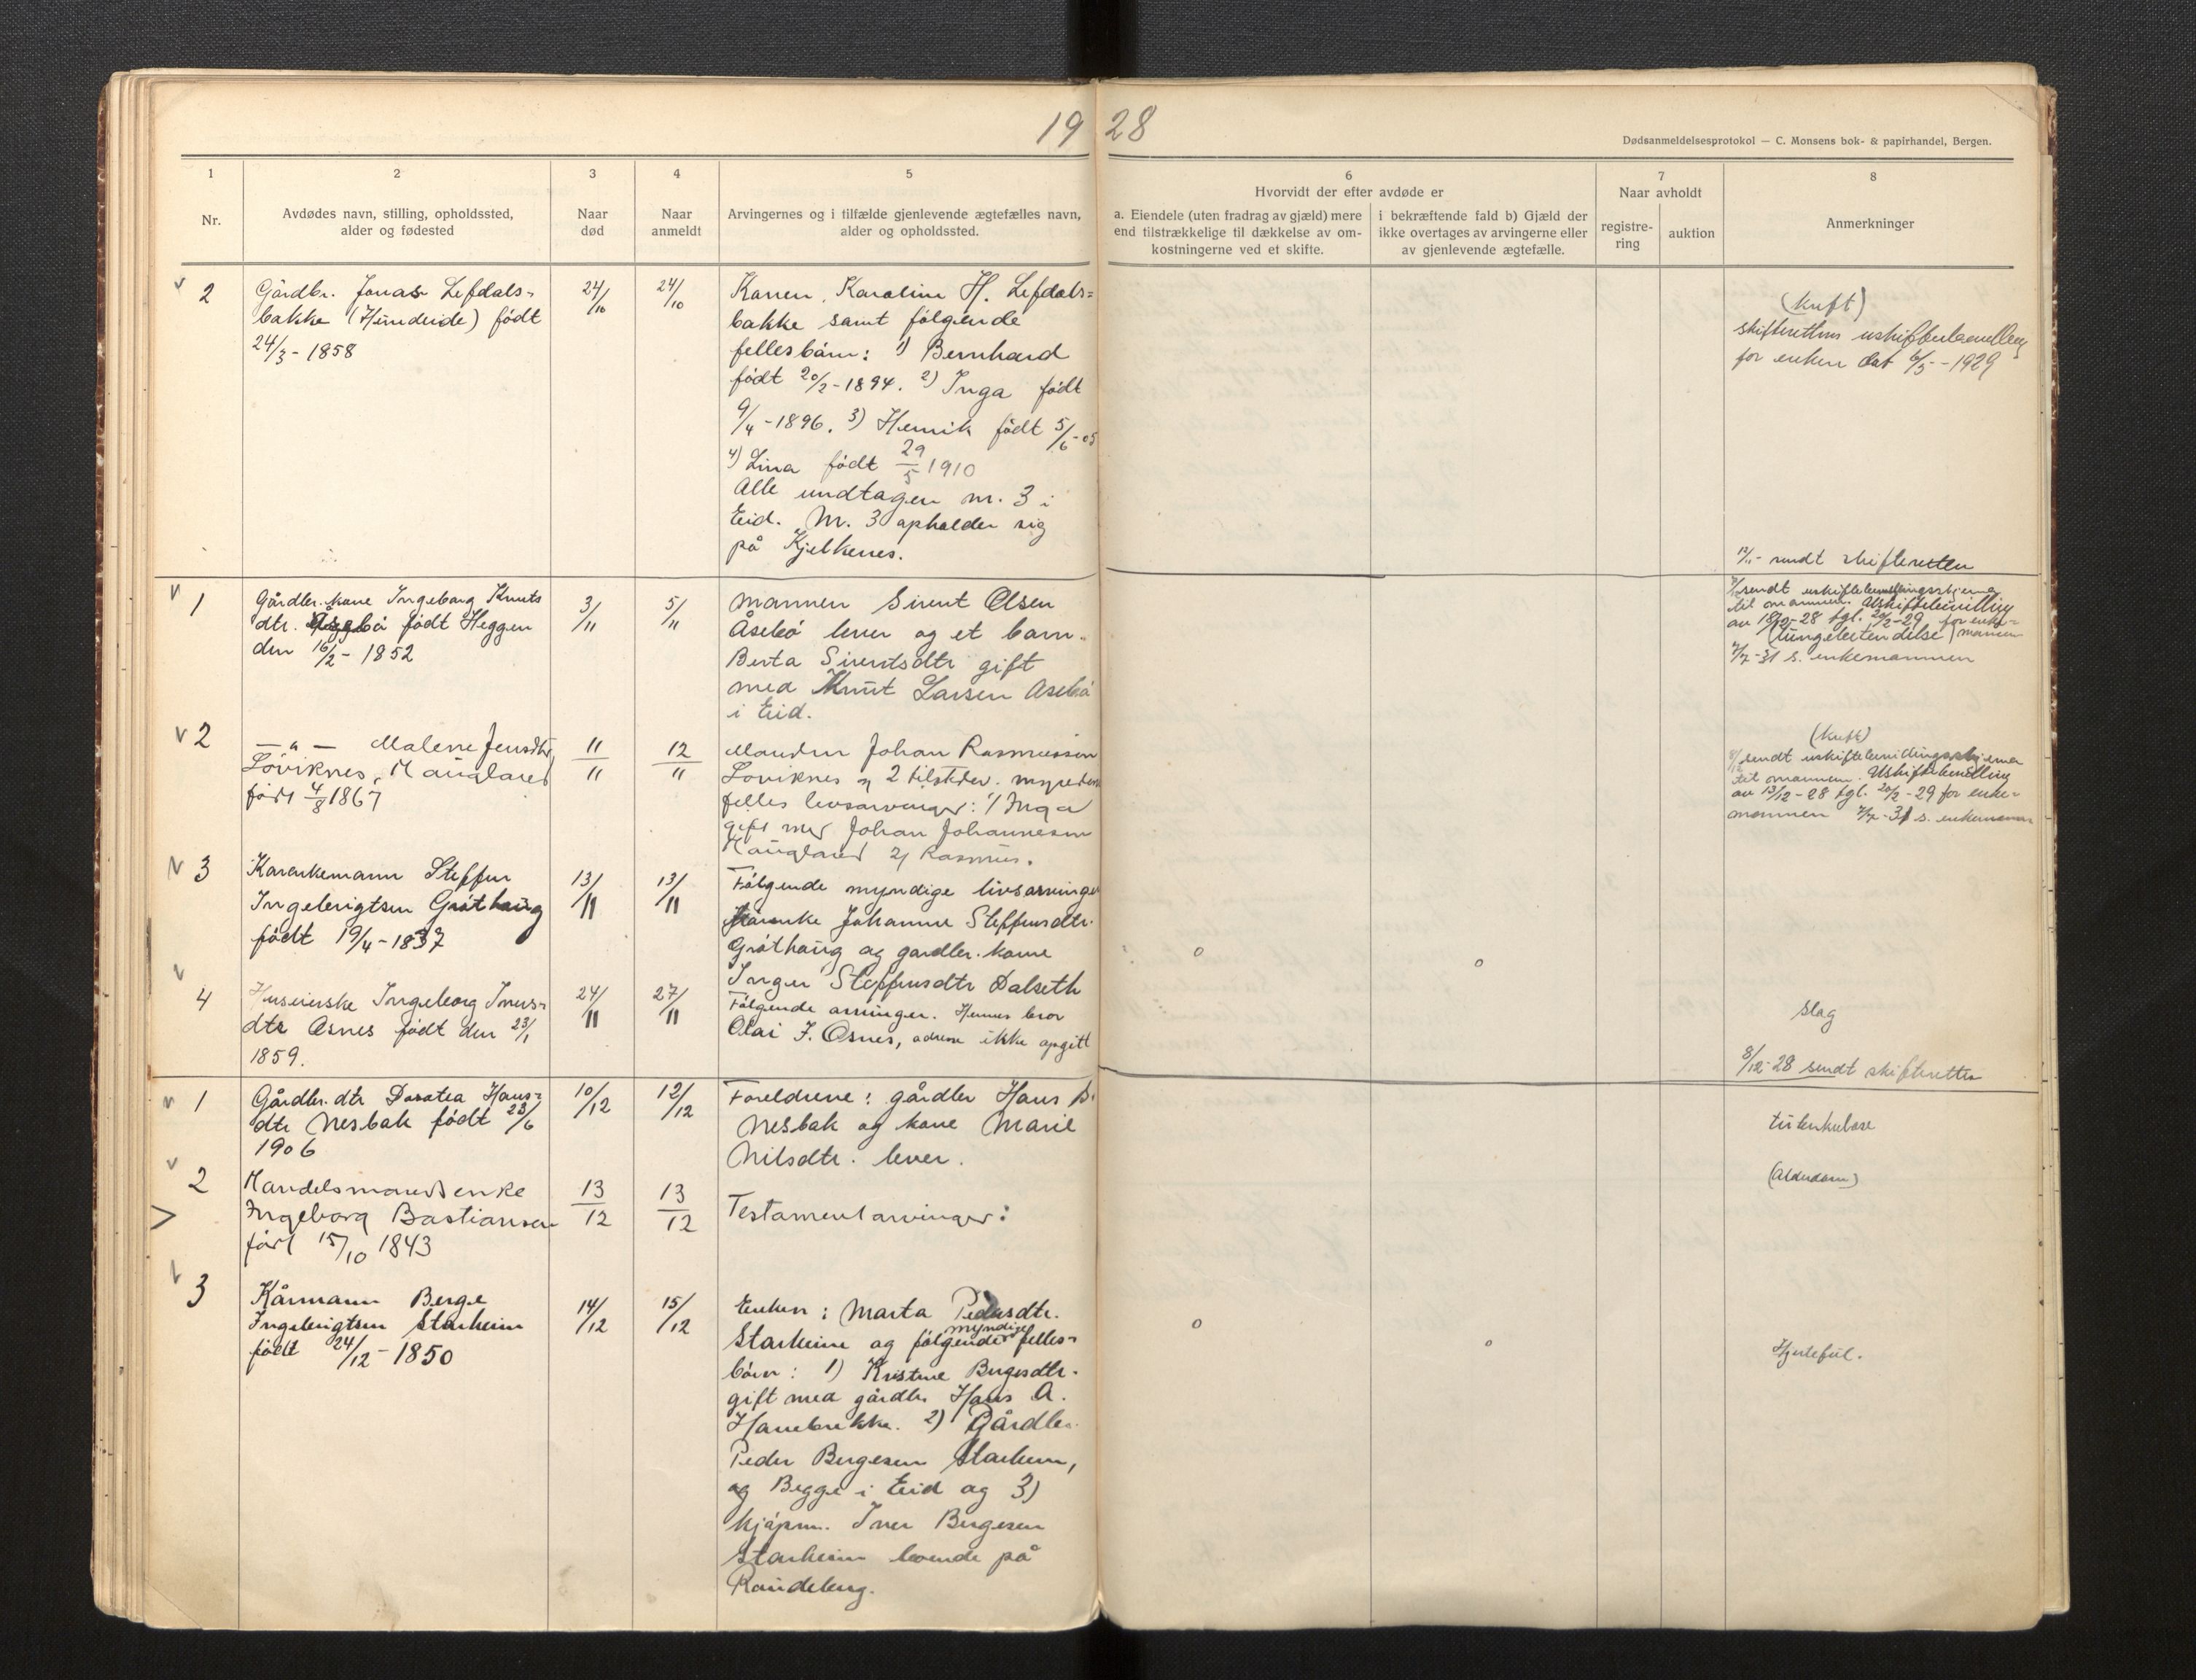 19 28
Dødsanmeldelsesprotokol — C. Monsens bok- & papirhandel, Bergen.
1
Nr.
2
Avdødes navn, stilling, opholdssted,
alder og fødested
3
Naar
død
4
Naar
anmeldt
5
Arvingernes og i tilfælde gjenlevende ægtefælles navn,
alder og opholdssted.
6
Hvorvidt der efter avdøde er
a. Eiendele (uten fradrag av gjæld) mere
end tilstrækkelige til dækkelse av om-
kostningerne ved et skifte.
i bekræftende fald b) Gjæld der
ikke overtages av arvingerne eller
av gjenlevende ægtefælle.
7
Naar avholdt
registre-
ring
auktion
8
Anmerkninger
2
Gårdbr. Jonas Lefdals-
bakke (Hundeide) født
24/3 - 1858
24/10
24/10
Konen, Karoline H. Lefdals=
bakke samt følgende
fellesbårn: 1) Bernhard
født 20/2 - 1894. 2) Inga født
9/4 - 1896. 3) Henrik født 5/6 - 05
4) Lina født 29/5 1910
Alle undtagen nr. 3 i
Eid. Nr. 3 opholder sig
på Kjelkenes.
(kreft)
skifterettens uskiftebevilling
for enken dat 6/5 - 1929
12/11 - sendt skifteretten
1
Gårdbr. kone Ingeborg Knuts
dtr. født Heggen
den 16/2 - 1852
3/11
5/11
Mannen Sivert Olsen
Åsebø lever og et barn.
Berta Sivertsdtr gift
med Knut Larsen Åsebø
i Eid.
sendt uskiftebevillingsskjema
til mannen. Uskiftebevilling
av 18/12 - 28 tgl. 20/2 - 29 for enke-
(lungebetendelse) mannen
7/7 - 31 s. enkemannen
2
— " — Malene Jensdtr
Løviknes, Haugland
født 4/8 1867
11/11
12/11
Manden Johan Rasmussen
Løviknes og 2 tilsteder. myndige
felles livsarvinger: 1) Inga
gift med Johan Johannesen
Haugland 2) Rasmus.
(kreft)
8/12 sendt uskiftebevillingsskjema
til mannen. Uskiftebevilling
av 13/12 - 28 tgl. 20/2 - 29 for enke-
mannen 7/7 - 31 s. enkemannen
3
Kårenkemann Steffen
Ingebrigtsen Grøthaug
født 19/4 - 1837
13/11
13/11
Følgende myndige livsarvinger
Kårenke Johanne Steffensdtr.
Grøthaug og gårdbr. kone
Inger Steffensdtr Dalseth
o
o
4
Ingeborg Iversdtr
dtr Osnes født den 23/1
1859.
24/11
27/11
Følgende arvinger. Hennes bror
Olai J. Osnes, adresse ikke opgitt
slag
8/12 - 28 sendt skifteretten
1
Gårdbr. dtr Dorotea Hans-
dtr Nesbak født 23/6
1906
10/12
12/12
Foreldrene: gårdbr Hans B.
Nesbak og kone Marie
Nilsdtr. lever.
tuberkulose
2
Handelsmandsenke
Ingeborg Bastiansen
født 15/10 1843
13/12
13/12
Testamentarvinger:
(Alderdom)
3
Kårmann Berge
Ingebrigtsen Starheim
født 24/12 - 1850
14/12
15/12
Enken: Marta Pedersdtr.
Starheim og følgende myndige felles-
børn: 1) Kristine Bergesdtr.
gift med gårdbr. Hans A.
Havebrekke. 2) Gårdbr.
Peder Bergesen Starheim,
og Begge i Eid og 3)
kjøpm. Iver Bergesen
Starheim boende på
Raudeberg.
o
o
Hjertefeil.